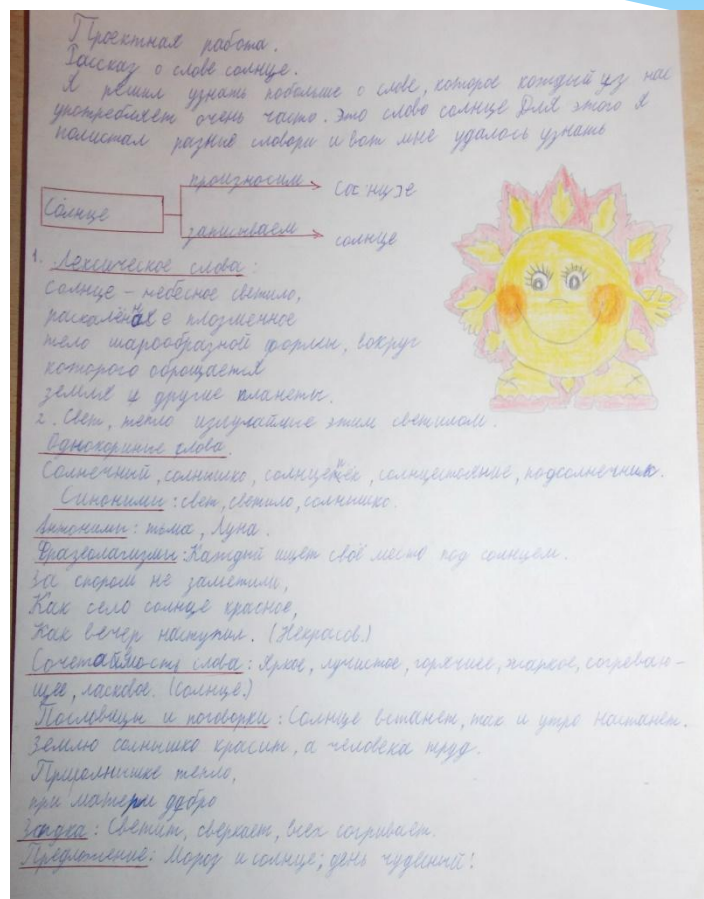 Проектная работа.
Рассказ о слове солнце.
Я решил узнать побольше о слове, которое каждый из нас
употребляет очень часто. Это слово солнце Для этого я
полистал разные словори и вот мне удалось узнать
произносим
сонце
Солнце
записываем
солнце
1. Лексическое слова:
солнце – небесное светило,
плозменное
тело шарообразной формы, вокруг
которого оброщается
земля и другие планеты.
2. Свет, тепло излучаймые этим светилом.
Однокориные слова.
Солнечный, солнышко, солнцепёк, солнцестояние, подсолнечник.
Синонимы: свет, светило, солнышко.
Антонимы: тьма, Луна.
Фразеологизмы: Каждый ищет своё место под солнцем.
За спором не заметили,
Как село солнце красное,
Как вечер наступил. (Некрасов.)
Сочетаймость слова: Яркое, лучистое, горячиее, жаркое, согреваю-
щее, ласковое. (Солнце.)
Пословицы и поговорки: Солнце встанет, так и утро настанет.
Землю солнышко красит, а человека труд.
тепло,
при матери добро
Загдка: Светит, сверкает, всех согривает.
Предложение: Мороз и солнце; день чудесный!